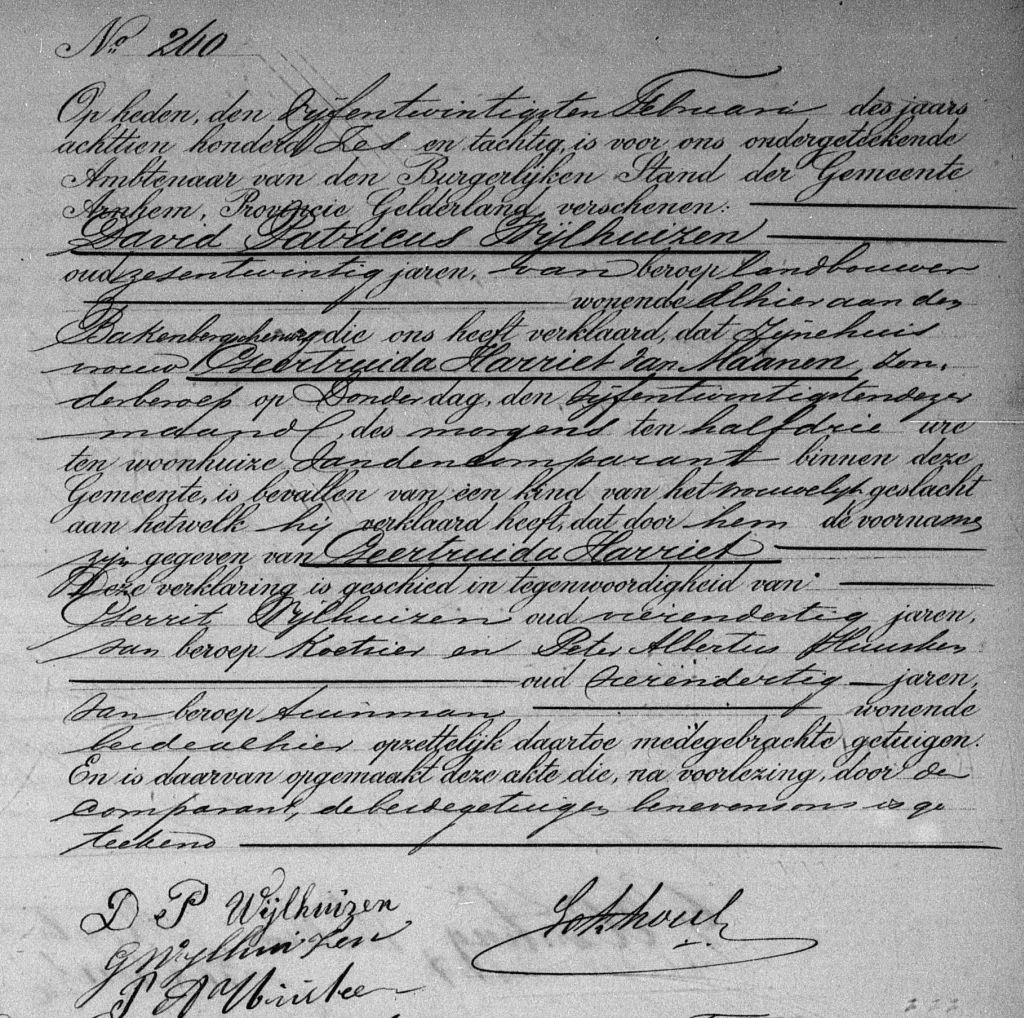 No 260
Op heden, den vijfentwintigsten Februari des jaars
achttien honderd Zes en tachtig, is voor ons ondergeteekende
Ambtenaar van den Burgerlijken Stand der Gemeente
Arnhem, Provincie Gelderland, verschenen:
David Patricus Wijlhuizen
oud zesentwintig jaren, van beroep landbouwer
wonende alhier aan den
Bakenbergschenweg die ons heeft verklaard, dat zijne huis
vrouw Geertruida Harriet van Maanen, zon,
der beroep op Donderdag, den vijfentwintigsten dezer
maand, des morgens ten half drie ure
ten woonhuize van den comparant binnen deze
Gemeente, is bevallen van een kind van het vrouwelijk geslacht
aan hetwelk hij verklaard heeft, dat door hem de voorname
zijn gegeven van Geertruida Harriet
Deze verklaring is geschied in tegenwoordigheid van
Gerrit Wijlhuizen oud vierendertig jaren,
van beroep koetsier en Peter Albertus
oud vierendertig jaren,
van beroep tuinman wonende
beide alhier opzettelijk daartoe medegebrachte getuigen.
En is daarvan opgemaakt deze akte die, na voorlezing, door den
comparant, de beide getuigen benevens ons is ge
teekend
D P Wijlhuizen
G Wylhuizen
P A